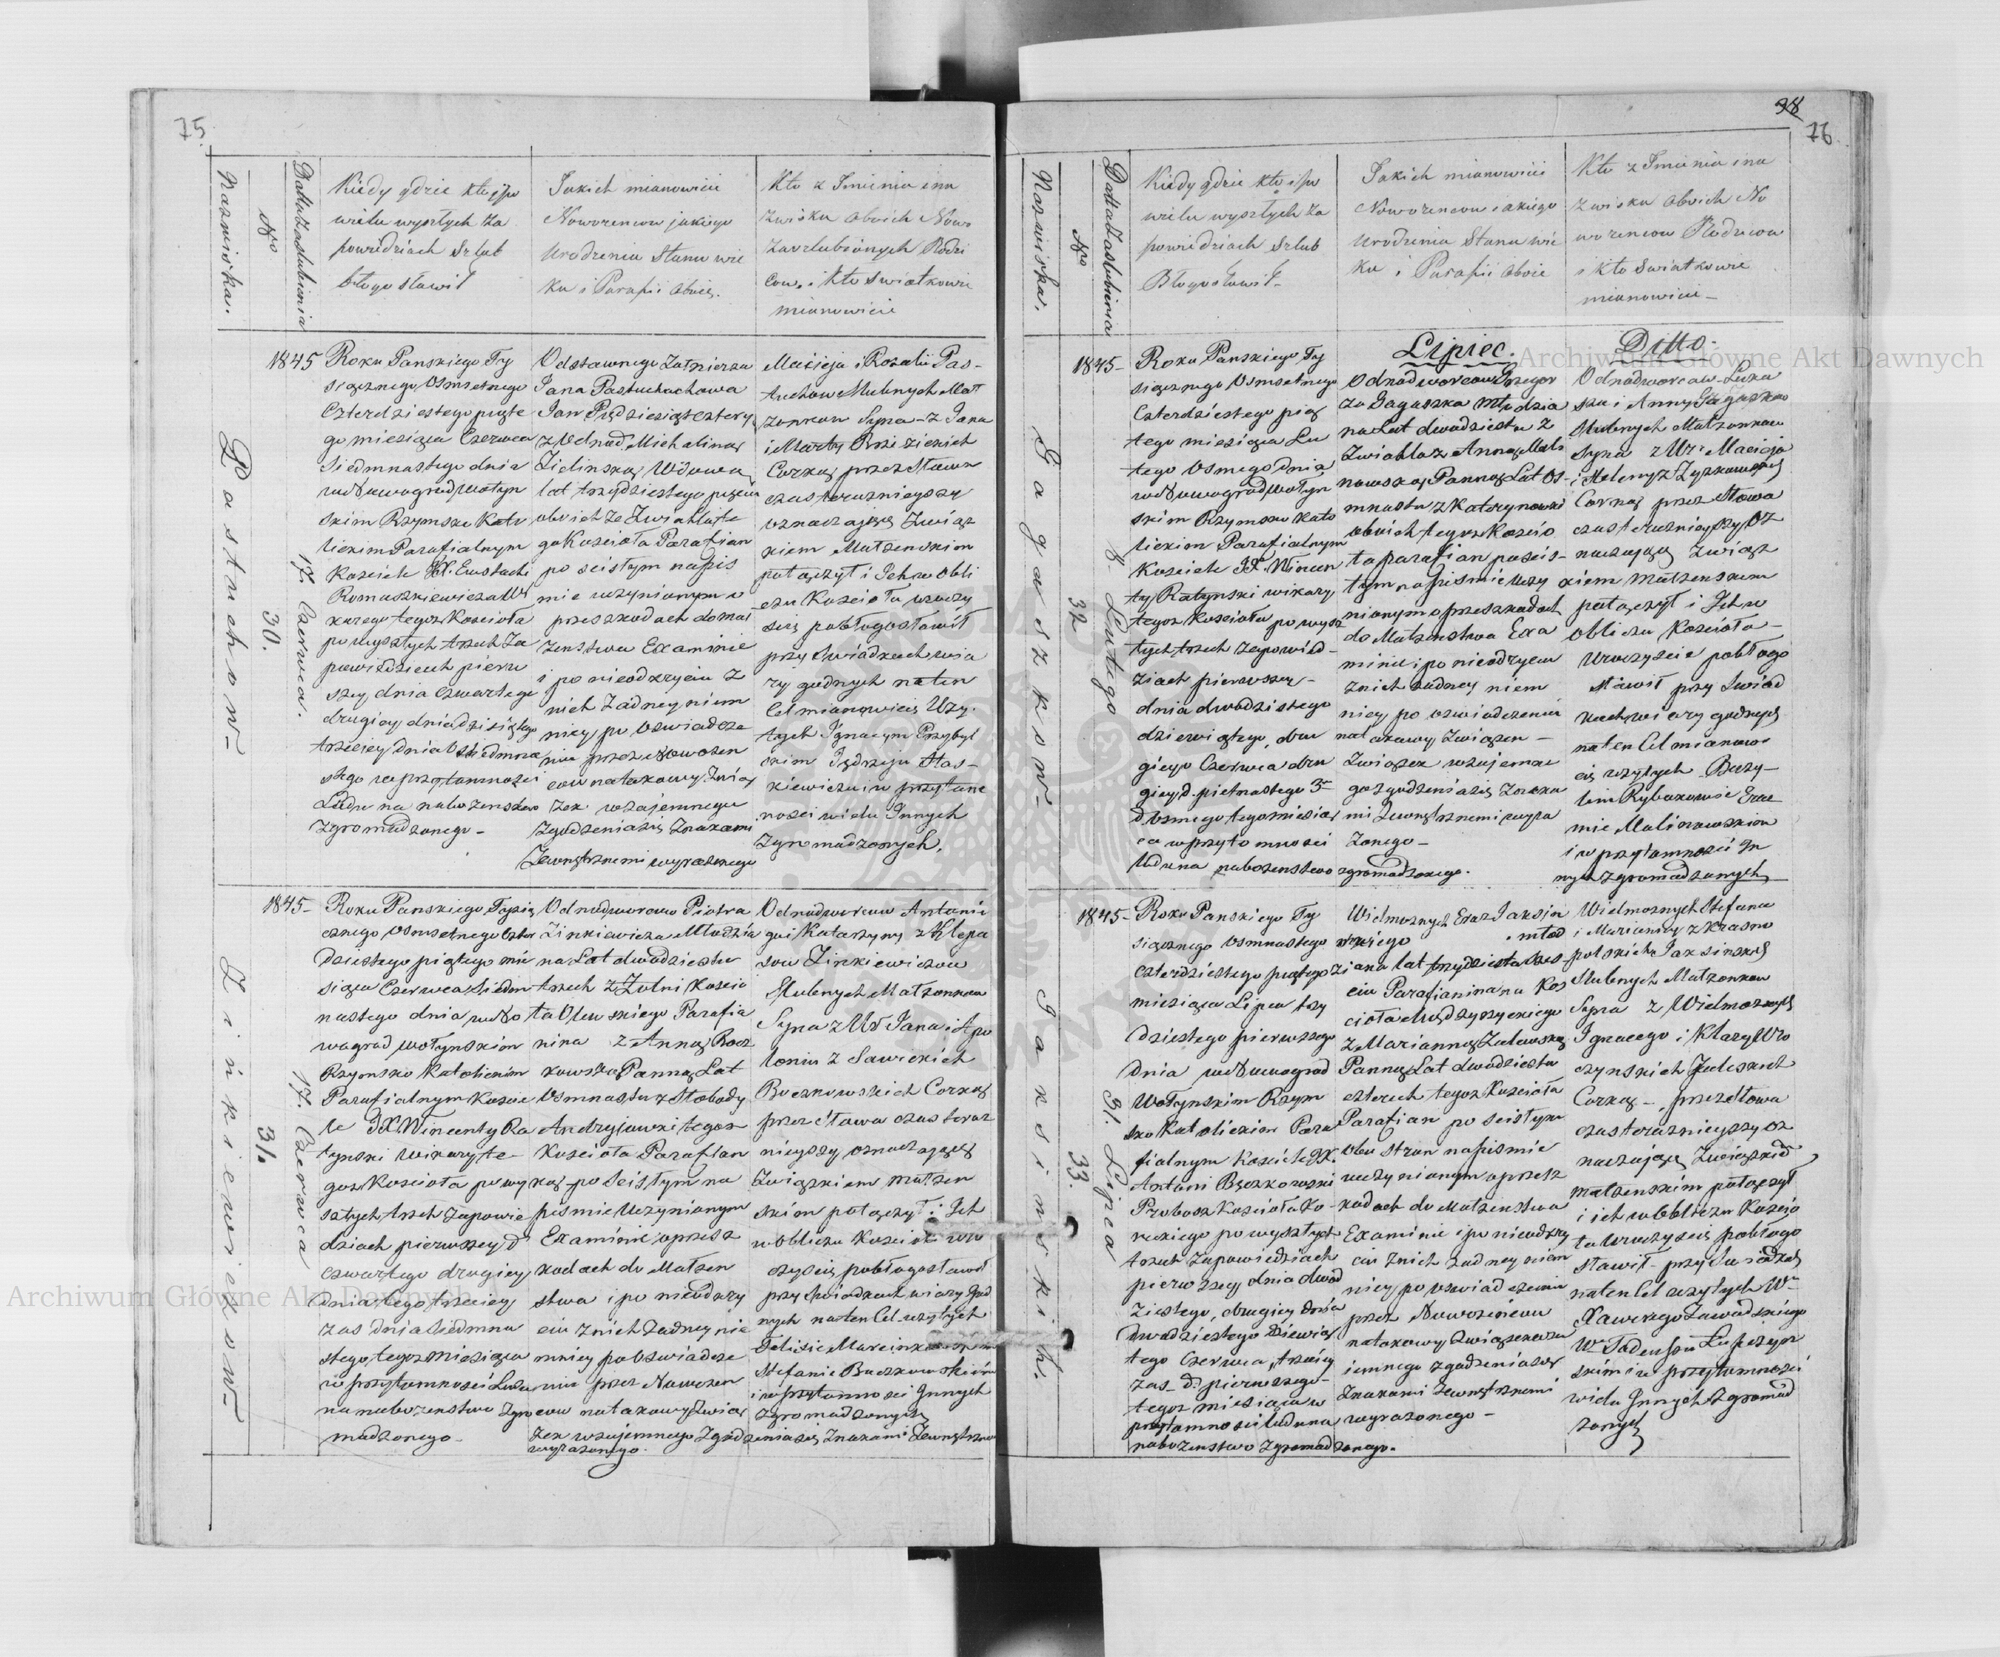 75.
Nazwiska.
No
Datta Zaslubienia
Kiedy gdzie kto i po
wielu wyszłych Za
powiedziach Szlub
błogosławił
Jakich mianowicie
Nowozencow jakiego
Urodzenia Stanu wie
ku i Parafii oboie.
Kto z Imienia ina
zwiska oboich Nowo
Zaszlubionych Rodzi
cow. i Kto Swiatkowie
mianowicie
Pastuchow
30.
17. Czerwca.
1845
Roku Panskiego Ty
siącznego Osmsetnego
Czterdziestego piąte
go miesiąca Czerwca
Siedmnastego dnia
w Nowogradwołyn
skim Rzymsko Kato
lickim Parafialnym
Kosciele JX. Eustachi
Romaszkiewicz Wi
kary tegoz Koscioła
po wyszłych trzech Za
powiedziach pierw
szey dnia czwartego
drugiey dnia dziesiątego
trzeciey dnia Siedmna
stego w przytomnosci
Ludu na nabozenstwo
zgromadzonego -
Odstawnego Zołnierza
Jana Pastuchowa
Lat Pięćdziesiąt cztery
z Odnod. Michaliną
Zielinską Wdową
lat trzydziestego pięciu
oboich ze Zwiahla te
go Koscioła Parafian
po scisłym napis
mie uczynionym o
przeszkodach do mał
zenstwa Examinie
i po nieodkryciu z
nich Zadney niem
niey po oswiadcze
niu przez Nowozen
cow natakowy Zwią
zek wzajemnego
zgodzenia się Znakami
Zewnętrznemi wyrażonego
Macieja i Rozalii Pas-
tuchow Slubnych Mał
zonkow Syna - z Jana
i Marty Brzezickich
Corką przez Słowa
czas teraznieyszy
oznaczające Zwiąż
kiem Małzenskim
połączył i Ich w obli
czu Koscioła uroczy
scie pobłogosławił
przy Swiadkach wia
ry godnych naten
Cel mianowicie Uzy
tych Ignacym Przybył
skim Jędrzeju Stas-
kiewiczu i w przytom
nosci wielu Innych
Zgromadzonych.
Zinkiewiczow
31.
17. Czerwca
1845-
Roku Panskiego Tysią
cznego Osmsetnego Czter
dziestego piątego mie
siąca Czerwca Siedm
nastego dnia w Nowo
wagrad wołynskim
Rzymsko Katolickim
Parafialnym Koscie
le JX. Wincenty Ra
tynski Wikary te-
goz Koscioła po wy
szłych trzech Zapowie
dziach pierwszey d.
czwartego drugiey
dnia tego trzeciey
zas dnia Siedmna
stego tegoz miesiąca
w przytomnosci Ludu
na nabozenstwo Zgro
madzonego -
Odnodworcow Piotra
Zinkiewicza Młodzia
na Lat dwadziestu
trzech z Zołni Koscio
ła Olewskiego Parafia
nina z Anną Bocz
kowską Panną Lat
Osmnastu z Słobody
Andryjowki tegoz
Koscioła Parafian
ką po Scisłym na
pismie Uczynionym
Examinie o przesz
kodach do Małzen
stwa i po nieodkry
ciu z nich Zadney nie
mniey po oswiadcze
niu przez Nowozen
cow natakowy Zwią
zek wzajemnego Zgodzenia się Znakami Zewnętrzne
wyrażonego.
Odnodworcow Antonie
go i Katarzyny z Klepa
sow Zinkiewiczow
Slubnych Małzonkow
Syna z Ur Jana i Apo
lonii z Sawickich
Boczkowskich Corką
przez Słowa czas teraz
nieyszy oznaczające
Zwiąskiem Małzen
skim połączył i Ich
w obliczu Koscioła uro
czyscie pobłogosławił
przy Swiadkach wiary God
nych naten Cel uzytych
Felixie Marcinkowskim
Stefanie Boczkowskim
i w przytomnosci Innych
zgromadzonych
38
76
Nazwiska.
No
Datta Zaslubienia
Kiedy gdzie kto i po
wielu wyszłych za
powiedziach Szlub
Błogosławił-
Jakich mianowicie
Nowozencow iakiego
Urodzenia Stanu wie
ku i Parafii oboie
Kto z Imienia ina
zwiska oboich No
wozencow Rodzicow
i kto Swiatkowie
mianowicie-
Gaguszkow
32
8 Lutego
1845-
Roku Panskiego Ty
siącznego Osmsetnego
Czterdziestego pią
tego miesiąca Lu
tego Osmego dnia
w Nowogradwołyn
skim Rzymsko Kato
lickim Parafialnym
Kosciele JX. Wincen
ty Ratynski wikary
tegoz Koscioła po wysz
łych trzech zapowied-
ziach pierwszey -
dnia dwudziestego
dziewiątego, dru
giego Czerwca dru
giey d. pietnastego 3
d. Osmego tegoz miesią
ca w przytomnosci
ludu na nabozenstwo zgromadzonego.
Lipiec.
Odnodworcow Grzegor
za Gaguszka Młodzia
na Lat dwadziestu z
Zwiahla z Anną Mali
nowską Panną Lat Os-
mnastu z Katerynowki
oboich tegoz Koscio
ła parafian po scis-
łym na pismie Uczy
nionym o przeszkodach
do Małzenstwa Exa
minie i po nieodkryciu
z nich zadney niem
niey po oswiadczeniu
natakowy Zwiąsek -
Zwiąsek wzajemne
go zgodzenia się Znaka
mi Zewnętrznemi wyra
zonego -
Ditto.
Odnodworcow Łuka
sza i Anny Gaguszkow
Slubnych Małzonkow
Syna z Ur Macieja
i Heleny z Zyzkowskich
Corką przez Słowa
czas teraznieyszy oz
naczające Związ
kiem Małzenskim
połączył i Ich w
obliczu Koscioła -
Uroczyscie pobłogo
sławił przy Swiad
kach wiary godnych
naten Cel mianowi
cie uzytych Bazy-
lim Rybakowie Eraz
mie Malinowskim
i w przytomnosci In
nych zgromadzonych
Jaksinskich.
33.
31 Lipca
1845-
Roku Panskiego Ty
siącznego Osmnastego
czterdziestego piątego
miesiąca Lipca trzy
dziestego pierwszego
dnia w Nowograd
Wołynskim Rzym
sko Katolickim Para
fialnym Kosciele JX.
Antoni Bączkowski
Probosz Koscioła Ko-
reckiego po wyszłych
trzech Zapowiedziach
pierwszey dnia dwud
ziestego, drugiey dnia
dwudziestego Dziewią
tego Czerwca, trzeciey
zas d. pierwszego
tegoz miesiąca w
przytomnosci ludu na
nabozenstwo zgromadzonego.
Wielmoznych Eraz Jaksin
skiego młod
ziana lat trzydziestu szes
ciu Parafianina na Kos
cioła Międzyrzyckiego
z Marianną Zulewską
Panną Lat dwadziestu
czterech tegoz Koscioła
Parafian po scisłym
obu stron na pismie
uczynionym o przesz
kodach do Małzenstwa
Examinie i po nieodkry
ciu z nich zadney niem
niey po oswiadczeniu
przez Nowozencow
natakowy Związek wza
iemnego zgodzenia się
znakami Zewnętrznemi
wyrazonego -
Wielmoznych Stefana
i Marianny z Krasno
polskich Jaxinskich
Slubnych Małzonkow
Syna z Wielmoznych
Ignacego i Klary Wo
czynskich Zuleskich
Corką - przez Słowa
czas teraznieyszy oz
naczające Zwiąskiem
Małzenskim połączył
i ich w obliczu Koscio
ła Uroczyscie pobłogo
sławił - przy Swiadkach
naten Cel uzytych W-
Xawerego Zawadskiego
W Tadeuszu Lupczyn
skim i w przytomnosci
wielu Innych Zgromad
zonych
Archiwum Główne Akt Dawnych
Archiwum Główne Akt Dawnych